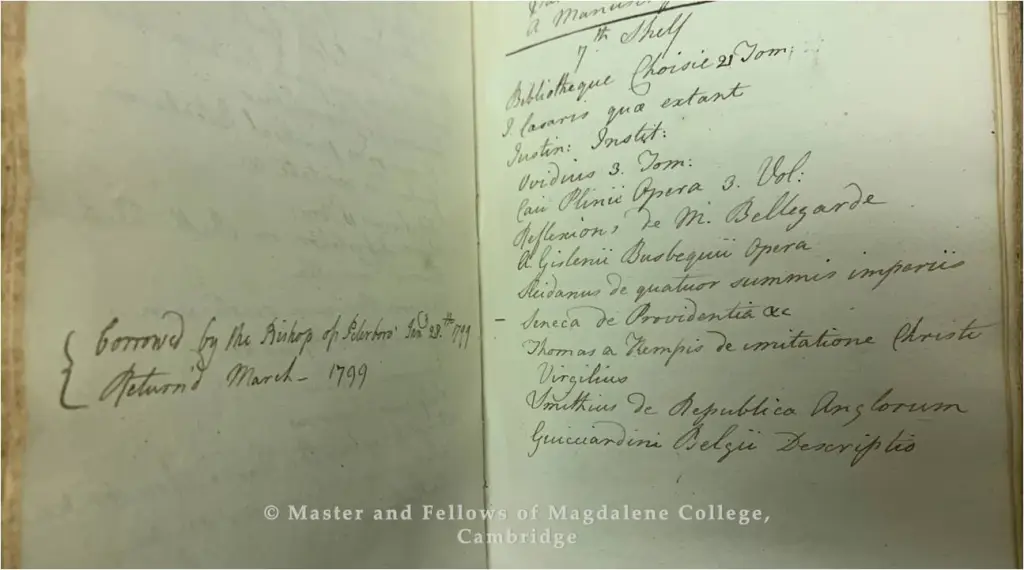 Borrowed by the Bishop of Peterboro' Jany 28.th 1799
Return'd March - 1799
A Manuscript
7th Shelf
Bibliotheque Choisie 21 Tom:
J. Cæsaris quæ extant
Justin: Instit:
Ovidius 3. Tom:
Caii Plinii Opera 3. Vol:
Reflexions de M. Bellegarde
A Gislenii Busbequii Opera
Sleidanus de quatuor summis imperiis
Seneca de Providentia &c
Thomas a Kempis de imitatione Christi
Virgilius
Smithius de Republica Anglorum
Guicciardini Belgii Descriptio
© Master and Fellows of Magdalene College,
Cambridge